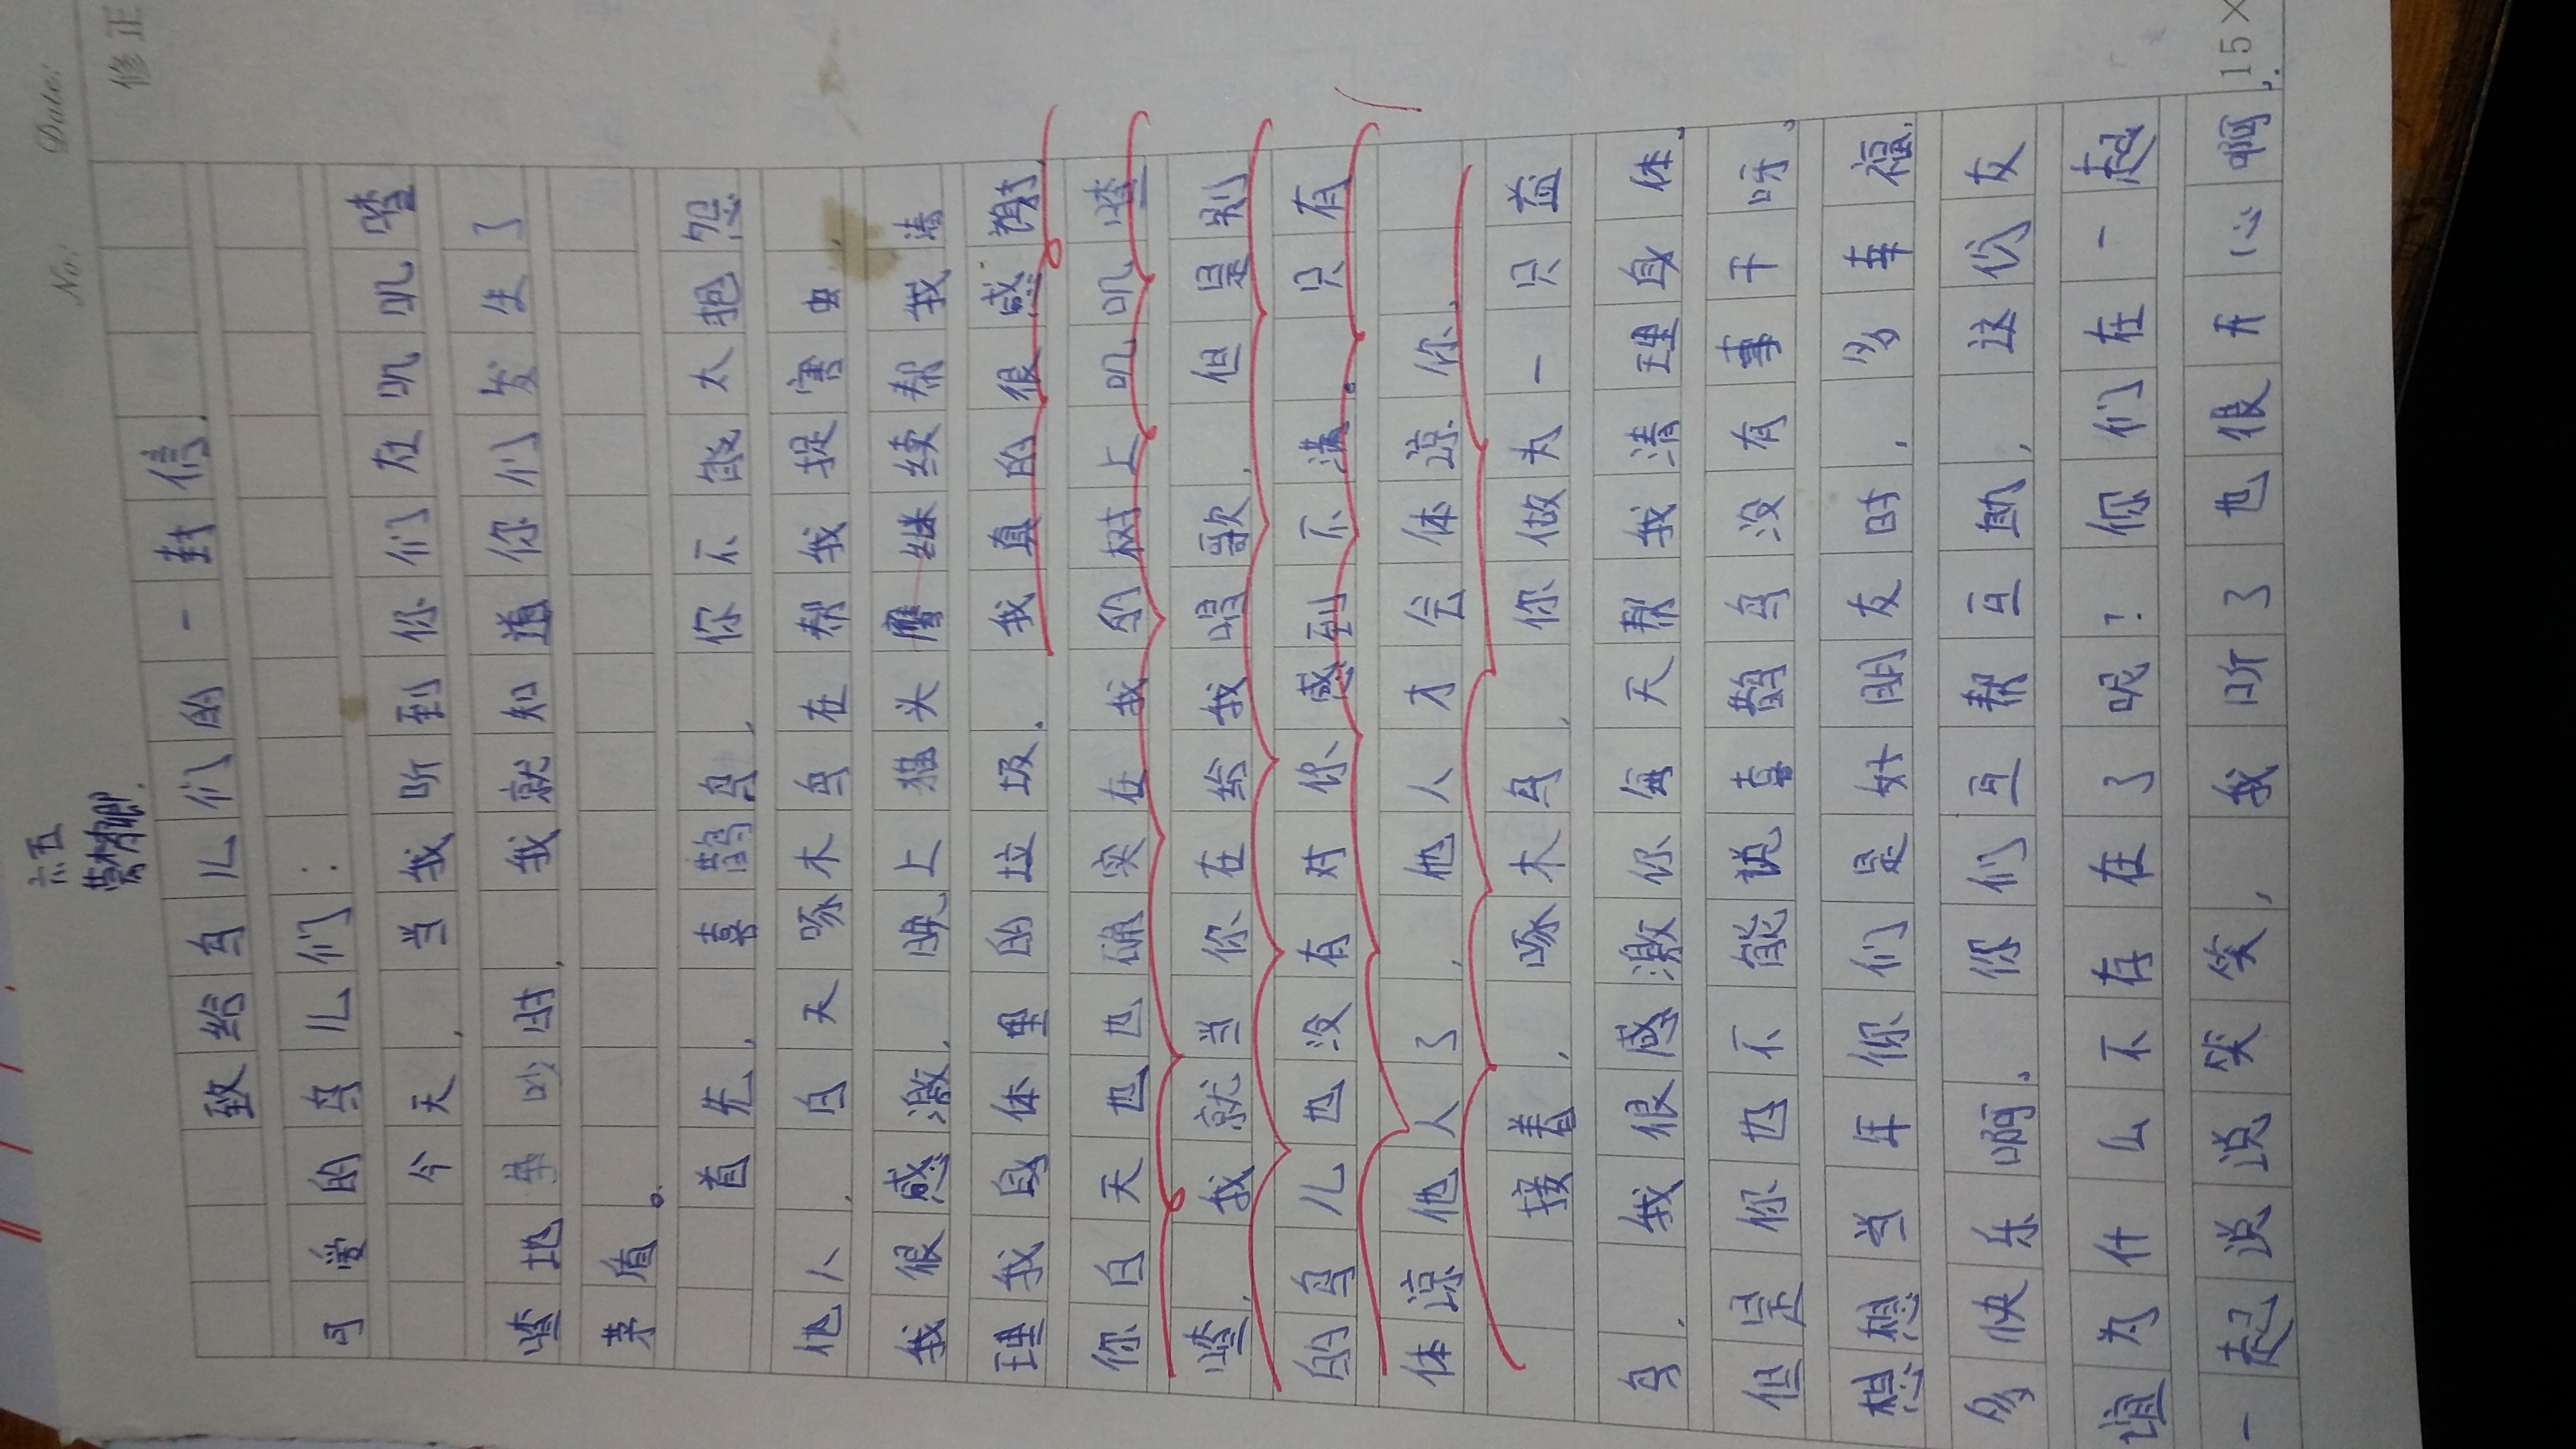 No: Date:
修正
致给鸟儿们的一封信.
可爱的鸟儿们：
今天，当我听到你们在叽叽喳
喳地争吵时，我就知道你们发生了
矛盾。
首先，喜鹊鸟，你不能太抱怨
他人，白天啄木鸟在帮我捉害虫，
我很感激，晚上猫头鹰继续帮我清
理我身体里的垃圾，我真的很感谢，
你白天也也确实在我的树上叽叽喳
喳，我就当你在给我唱歌，但是别
的鸟儿也没有对你感到不满。只有
体谅他人了，他人才会体谅你，
接着，啄木鸟，你做为一只益
鸟，我很感激你每天帮我清理身体，
但是你也不能说喜鹊鸟没有事干呀。
想想当年你们是好朋友时，多幸福，
多快乐啊。你们互帮互助，这份友
谊为什么不存在了呢？你们在一起
一起说说笑笑，我听了也很开心啊，
15×